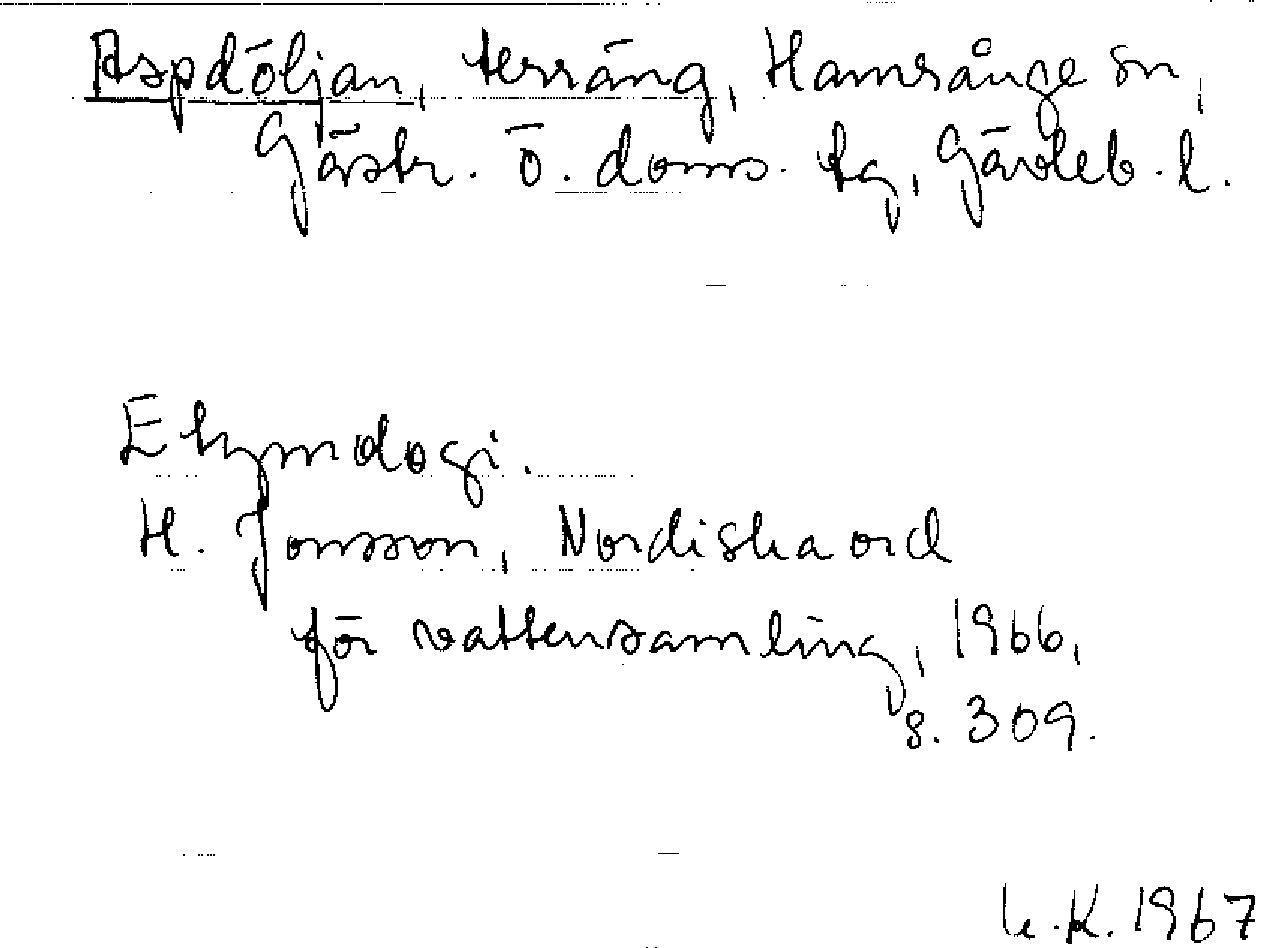 Aspdöljan, terräng, Hamrånge sn,
Gästr. ö. doms. tg, Gävleb. l.
Etymologi.
H. Jonsson, Nordiska ord
för vattensamling, 1966,
s. 309.
K. 1967